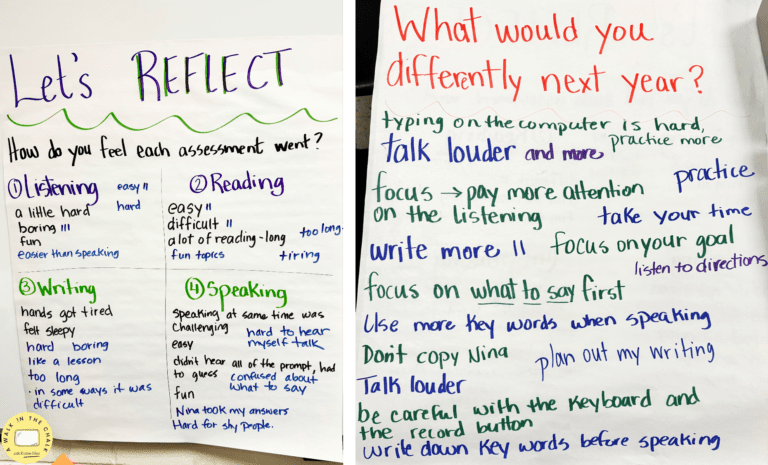 Let's REFLECT
How do you feel each assessment went?
① Listening
easy II
a little hard
hard
boring III
fun
easier than speaking
② Reading
easy II
difficult II
a lot of reading - long
too long
fun topics
tiring
③ Writing
hands got tired
felt sleepy
hard boring
like a lesson
too long
- in some ways it was
difficult
④ Speaking
Speaking at same time was
Challenging
hard to hear
myself talk
easy
didn't hear all of the prompt, had
to guess
confused about
what to say
fun
Nina took my answers
Hard for shy people.
A WALK IN THE CHALK
What would you
differently next year?
typing on the computer is hard,
practice more
talk louder and more
practice
focus → pay more attention
on the listening
take your time
write more II
focus on your goal
listen to directions
focus on what to say first
Use more key words when speaking
Don't copy Nina
plan out my writing
Talk louder
be careful with the keyboard and
the record button
Write down key words before speaking